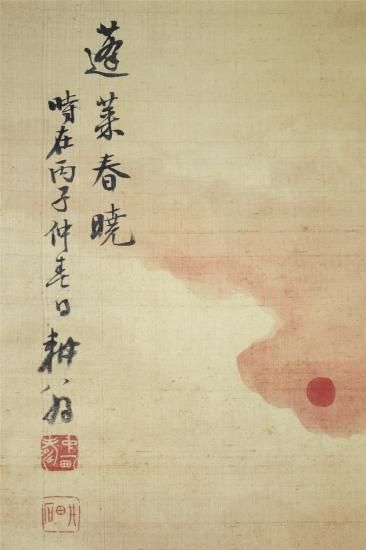 蓬莱春曉
時在丙子仲春日耕翁